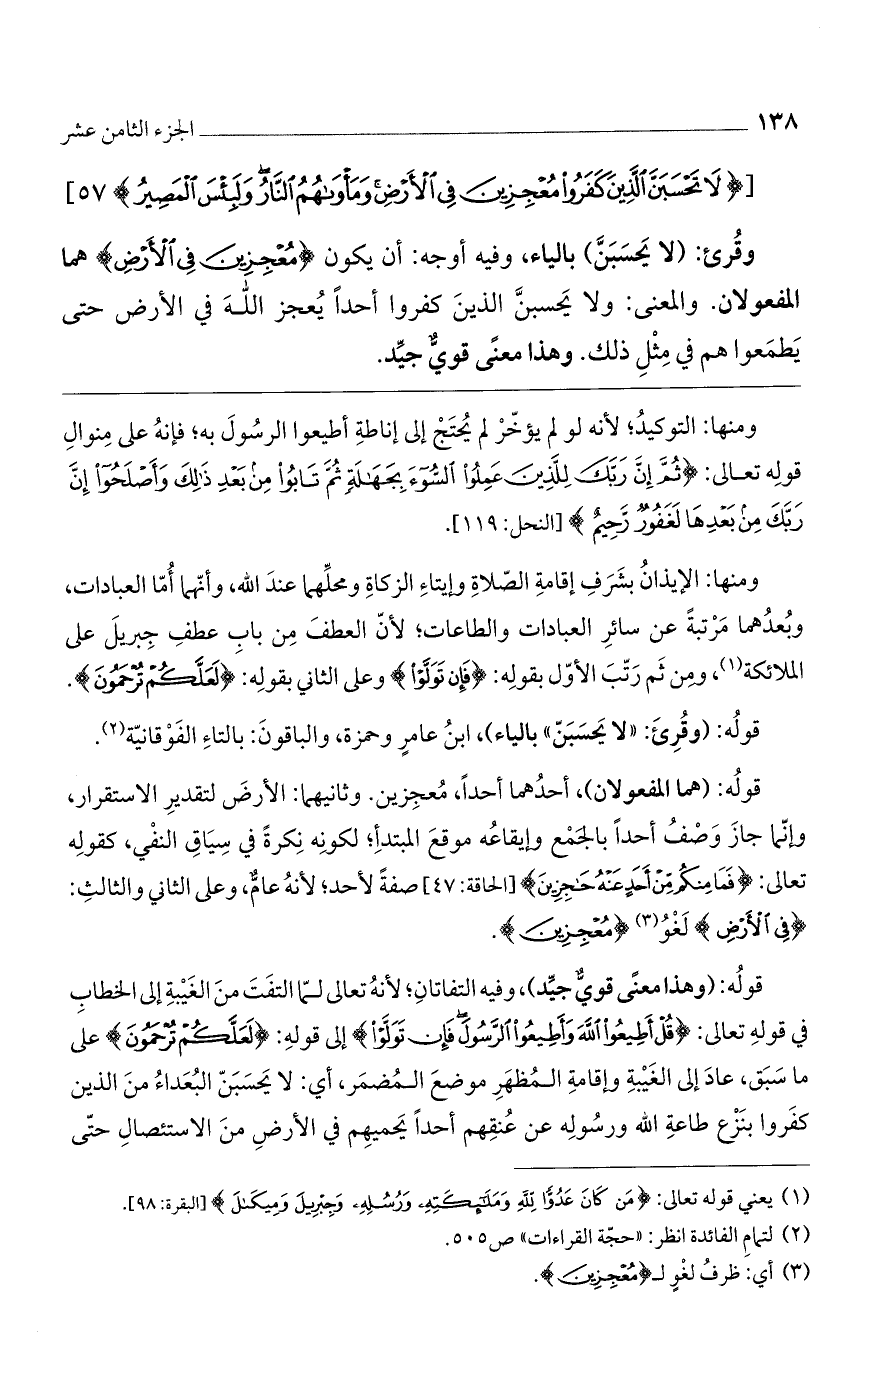 ١٣٨ الجزء الثامن عشر
[﴿لَا تَحْسَبَنَّ الَّذِينَ كَفَرُوا مُعْجِزِينَ فِي الْأَرْضِ وَمَأْوَاهُمُ النَّارُ وَلَبِئْسَ الْمَصِيرُ﴾ ٥٧]
وقُرئ: (لا يَحْسَبَنَّ) بالياء، وفيه أوجه: أن يكون ﴿مُعْجِزِينَ فِي الْأَرْضِ﴾ هما
المفعولان. والمعنى: ولا يَحسبنَّ الذينَ كفروا أحداً يُعجز اللهَ في الأرض حتى
يَطمَعوا هم في مِثْلِ ذلك. وهذا معنًى قويٌّ جيِّد.
ومنها: التوكيدُ؛ لأنه لو لم يؤخّرْ لم يُحتَجْ إلى إناطةِ أطيعوا الرسُولَ به؛ فإنهُ على مِنوالِ
قولِه تعـالى: ﴿ثُمَّ إِنَّ رَبَّكَ لِلَّذِينَ عَمِلُوا السُّوءَ بِجَهَالَةٍ ثُمَّ تَابُوا مِنْ بَعْدِ ذَلِكَ وَأَصْلَحُوا إِنَّ
رَبَّكَ مِنْ بَعْدِهَا لَغَفُورٌ رَّحِيمٌ﴾ [النحل: ١١٩].
ومنها: الإيذانُ بشَرَفِ إقامةِ الصّلاةِ وإيتاءِ الزكاةِ ومحلِّهما عندَ الله، وأنّهما أُمّا العبادات،
وبُعدُهما مَرْتبةً عن سائرِ العبادات والطاعات؛ لأنّ العطفَ مِن بابِ عطفِ جِبريلَ على
الملائكة(١)، ومِن ثَم رَتّبَ الأوّل بقولِه: ﴿فَإِن تَوَلَّوْا﴾ وعلى الثاني بقولِه: ﴿لَعَلَّكُمْ تُرْحَمُونَ﴾.
قولُه: (وقُرِئَ: «لا يَحْسَبَنّ» بالياء)، ابنُ عامرٍ وحمزة، والباقونَ: بالتاءِ الفَوْقانيّة(٢).
قولُه: (هما المفعولان)، أحدُهما أحداً، مُعجِزين. وثانيهما: الأرضَ لتقديرِ الاستقرار،
وإنّما جازَ وَصْفُ أحداً بالجَمْع وإيقاعُه موقعَ المبتدأِ؛ لكونِه نكِرةً في سِيَاقِ النفْي، كقولِه
تعالى: ﴿فَمَا مِنكُم مِّنْ أَحَدٍ عَنْهُ حَاجِزِينَ﴾ [الحاقة: ٤٧] صفةً لأحد؛ لأنهُ عامٌّ، وعلى الثاني والثالثِ:
﴿فِي الْأَرْضِ﴾ لَغْوُ(٣) ﴿مُعْجِزِينَ﴾.
قولُه: (وهذا معنًى قويٌّ جيِّد)، وفيه التفاتانِ؛ لأنهُ تعالى لـمّا التفَتَ منَ الغَيْبةِ إلى الخطابِ
في قولِه تعالى: ﴿قُلْ أَطِيعُوا اللَّهَ وَأَطِيعُوا الرَّسُولَ فَإِن تَوَلَّوْا﴾ إلى قولِهِ: ﴿لَعَلَّكُمْ تُرْحَمُونَ﴾ على
ما سَبَق، عادَ إلى الغَيْبةِ وإقامةِ الـمُظهَرِ موضعَ الـمُضمَر، أي: لا يَحْسَبَنّ البُعَداءُ منَ الذين
كفَروا بنَزْع طاعةِ الله ورسُولِه عن عُنقِهم أحداً يَحميهِم في الأرضِ منَ الاستئصالِ حتّى
(١) يعني قوله تعالى: ﴿مَن كَانَ عَدُوًّا لِلَّهِ وَمَلَائِكَتِهِ وَرُسُلِهِ وَجِبْرِيلَ وَمِيكَالَ﴾ [البقرة: ٩٨].
(٢) لتمامِ الفائدة انظر: «حجّة القراءات» ص٥٠٥.
(٣) أي: ظرفُ لغْوٍ لـ﴿مُعْجِزِينَ﴾.